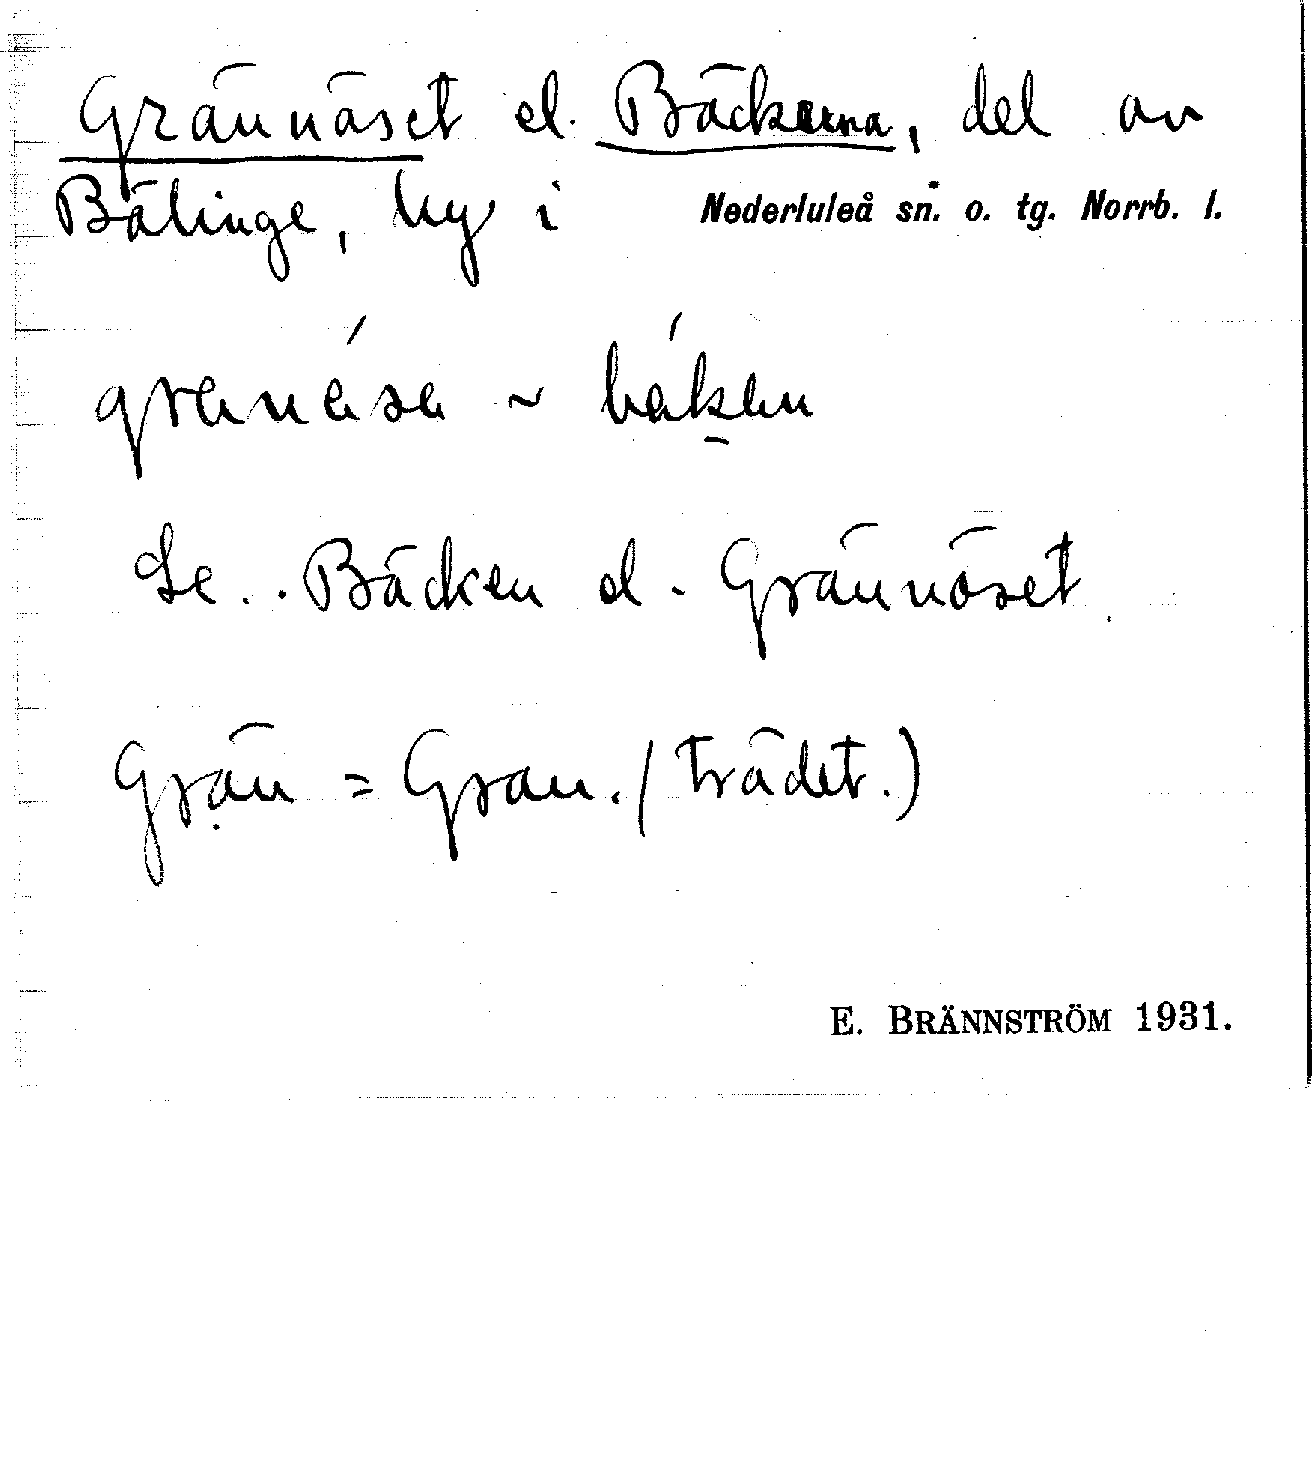 Grännäset el. Bäckerna, del av
Bälinge, by i Nederluleå sn. o. tg. Norrb. l.
granäsa ~ bäkan
Se.. Bäcken el. Grännäset.
Grän = Gran. (trädet.)
E. BRÄNNSTRÖM 1931.